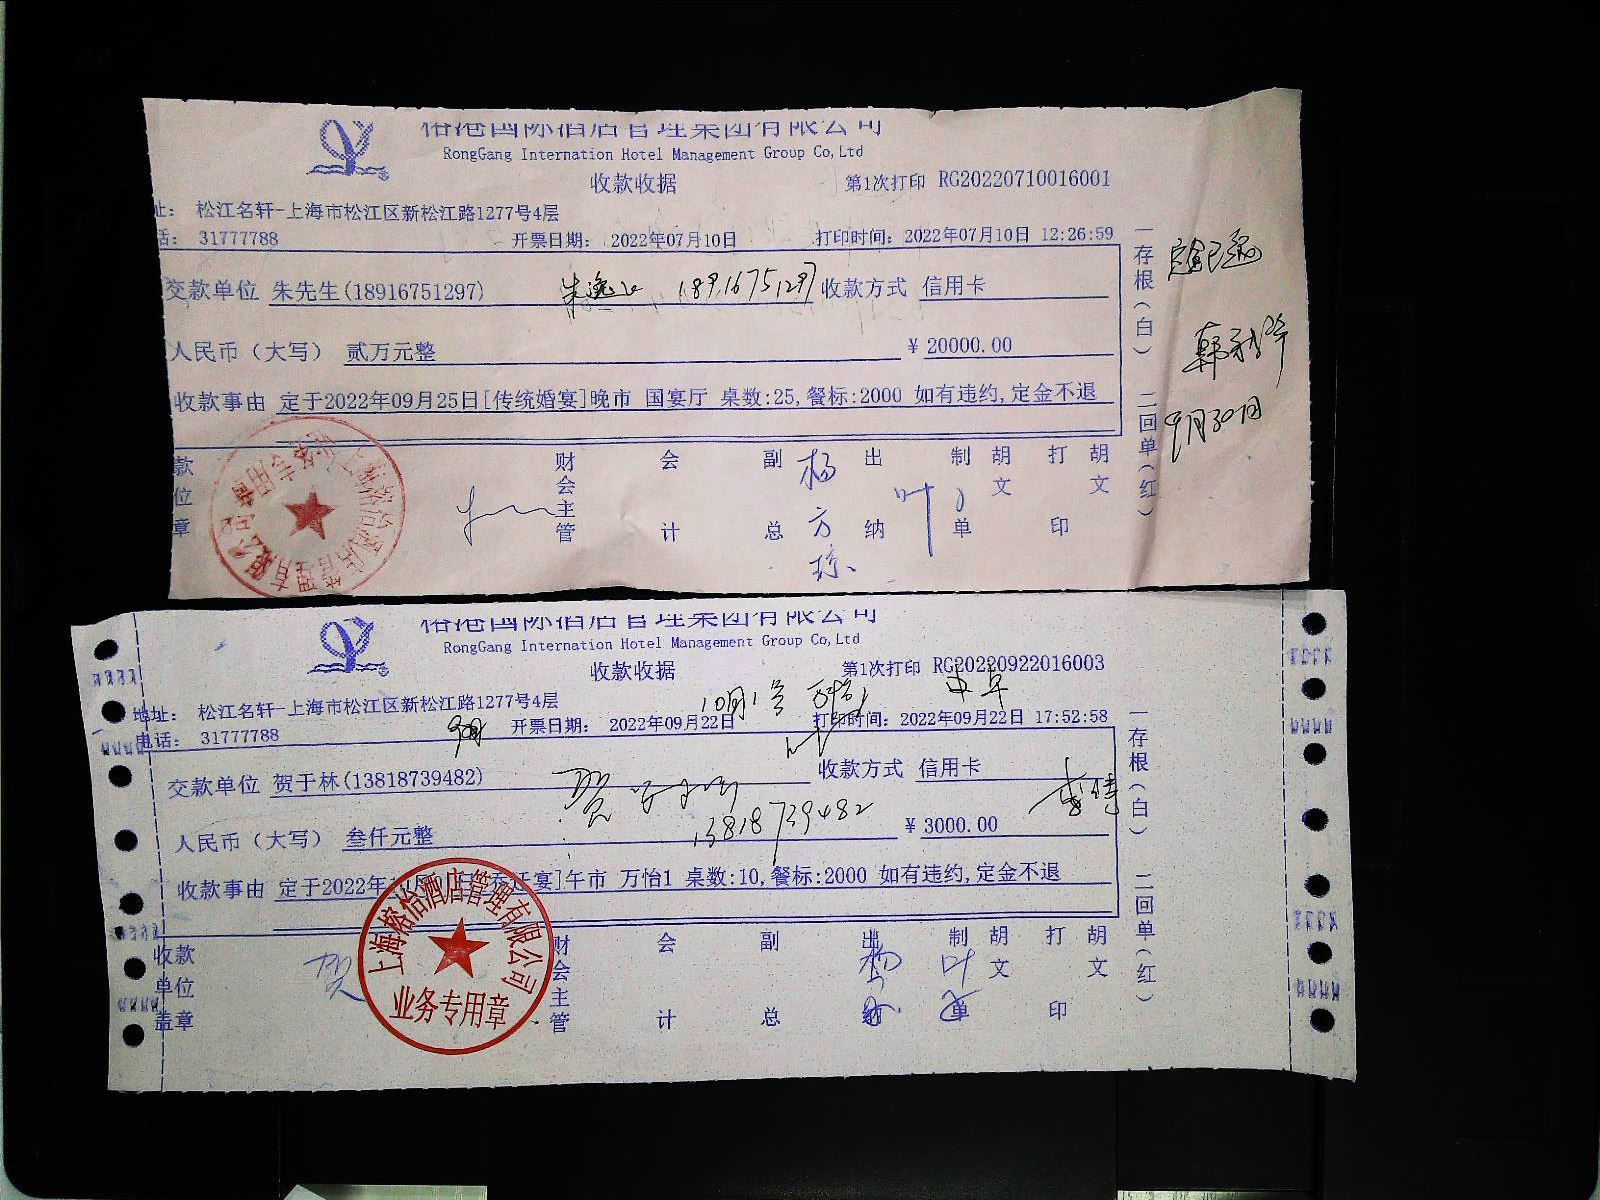 榕港国际酒店管理集团有限公司
RongGang Internation Hotel Management Group Co,Ltd
收款收据 第1次打印 RG20220710016001
址： 松江名轩-上海市松江区新松江路1277号4层
话： 31777788 开票日期： 2022年07月10日 打印时间：2022年07月10日 12:26:59
交款单位 朱先生(18916751297) 18916751297 收款方式 信用卡
人民币（大写） 贰万元整 ¥ 20000.00
收款事由 定于2022年09月25日[传统婚宴]晚市 国宴厅 桌数:25,餐标:2000 如有违约,定金不退
款位章 财会主管 会计 副总 杨方琼 出纳 叶 制单 胡文 打印 胡文
一存根（白） 二回单（红）
9月30日
榕港国际酒店管理集团有限公司
RongGang Internation Hotel Management Group Co,Ltd
收款收据 第1次打印 RG20220922016003
地址： 松江名轩-上海市松江区新松江路1277号4层 10月1号
电话： 31777788 开票日期： 2022年09月22日 打印时间：2022年09月22日 17:52:58
交款单位 贺于林(13818739482) 贺于林 收款方式 信用卡
人民币（大写） 叁仟元整 13818739482 ¥ 3000.00
收款事由 定于2022年 宴]午市 万怡1 桌数:10,餐标:2000 如有违约,定金不退
收款单位盖章 贺 财会主管 会计 副总 出纳 制单 叶 胡文 打印 胡文
上海榕怡酒店管理有限公司
业务专用章
一存根（白） 二回单（红）